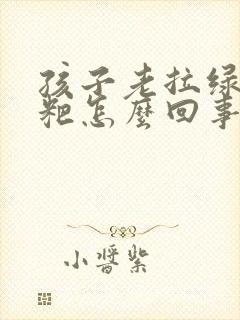 孩子老拉绿
粑怎麽回事
小醬紫